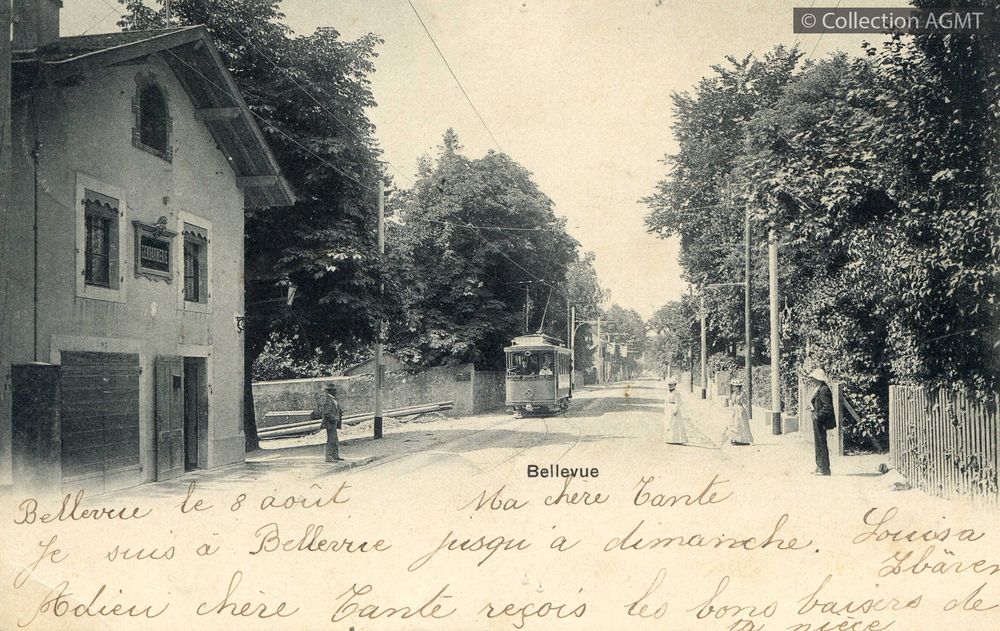 © Collection AGMT
GENDARMERIE
Bellevue
Bellevue le 8 août Ma chère Tante
Je suis à Bellevue jusqu'à dimanche. Louisa
Zbären
Adieu chère Tante reçois les bons baisers de
ta nièce